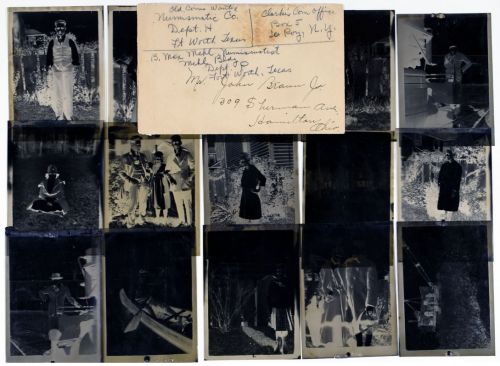 Old Coins Wanted
Numismatic Co.
Dept. H
Ft Worth Texas
Clarkes Coin Office
Box 5
Le Roy N.Y.
B. Max Mehl, Numismatist
Mehl Bldg
Dept
Fort Worth, Texas
Mr John Braun Jr
209 Sherman Ave
Hamilton,
Ohio